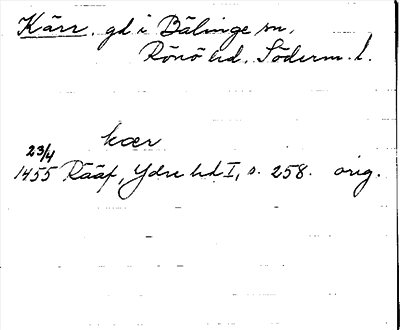 Kärr. gd i Bälinge sn,
Rönö hd. Söderm. l.
kær
23/4
1455 Rääf, Ydre hd I, s. 258. orig.